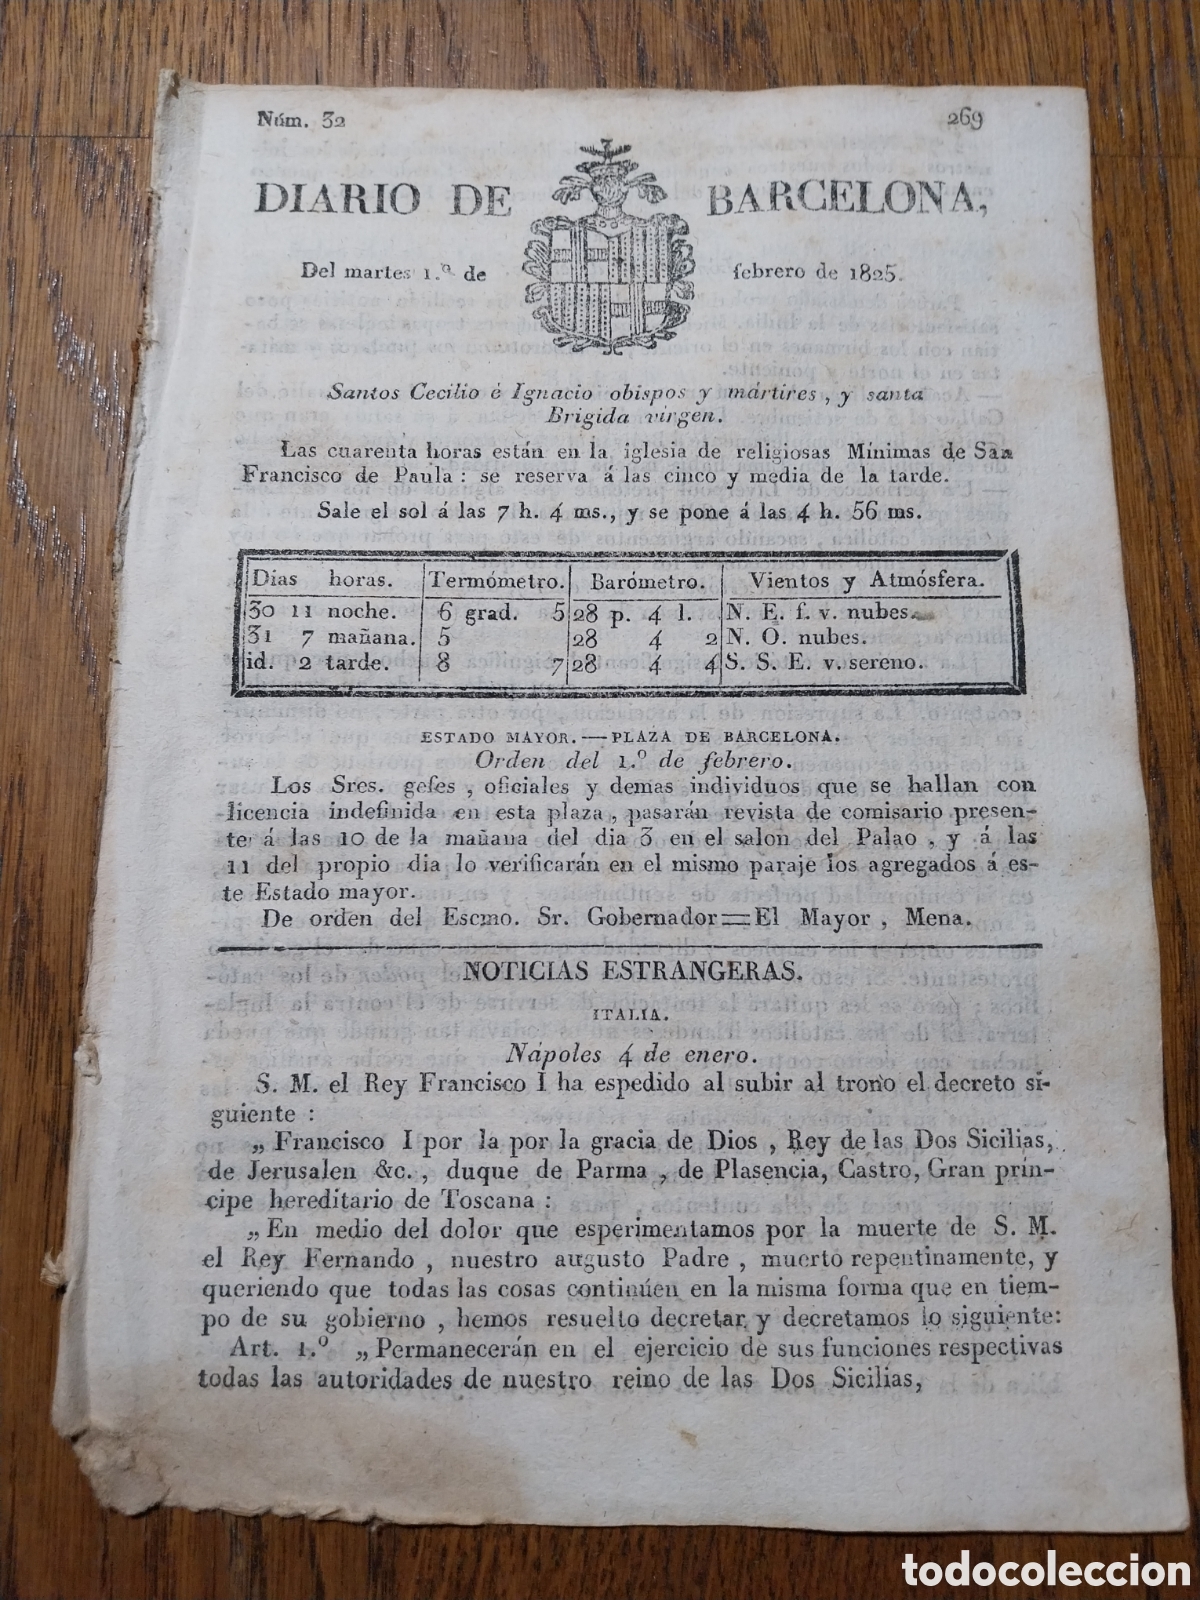 Núm. 32 269
DIARIO DE BARCELONA,
Del martes 1.º de febrero de 1825.
Santos Cecilio é Ignacio obispos y mártires, y santa
Brigida virgen.
Las cuarenta horas están en la iglesia de religiosas Mínimas de San
Francisco de Paula: se reserva á las cinco y media de la tarde.
Sale el sol á las 7 h. 4 ms., y se pone á las 4 h. 56 ms.
Dias horas. Termómetro. Barómetro. Vientos y Atmósfera.
30 11 noche. 6 grad. 5 28 p. 4 l. N. E. f. v. nubes.
31 7 mañana. 5 28 4 2 N. O. nubes.
id. 2 tarde. 8 7 28 4 4 S. S. E. v. sereno.
ESTADO MAYOR.—PLAZA DE BARCELONA.
Orden del 1.º de febrero.
Los Sres. gefes, oficiales y demas individuos que se hallan con
licencia indefinida en esta plaza, pasarán revista de comisario presen-
te á las 10 de la mañana del dia 3 en el salon del Palao, y á las
11 del propio dia lo verificarán en el mismo paraje los agregados á es-
te Estado mayor.
De orden del Escmo. Sr. Gobernador=El Mayor, Mena.
NOTICIAS ESTRANGERAS.
ITALIA.
Nápoles 4 de enero.
S. M. el Rey Francisco I ha espedido al subir al trono el decreto si-
guiente:
„Francisco I por la por la gracia de Dios, Rey de las Dos Sicilias,
de Jerusalen &c., duque de Parma, de Plasencia, Castro, Gran prín-
cipe hereditario de Toscana:
„En medio del dolor que esperimentamos por la muerte de S. M.
el Rey Fernando, nuestro augusto Padre, muerto repentinamente, y
queriendo que todas las cosas continúen en la misma forma que en tiem-
po de su gobierno, hemos resuelto decretar y decretamos lo siguiente:
Art. 1.º „Permanecerán en el ejercicio de sus funciones respectivas
todas las autoridades de nuestro reino de las Dos Sicilias,
todocoleccion